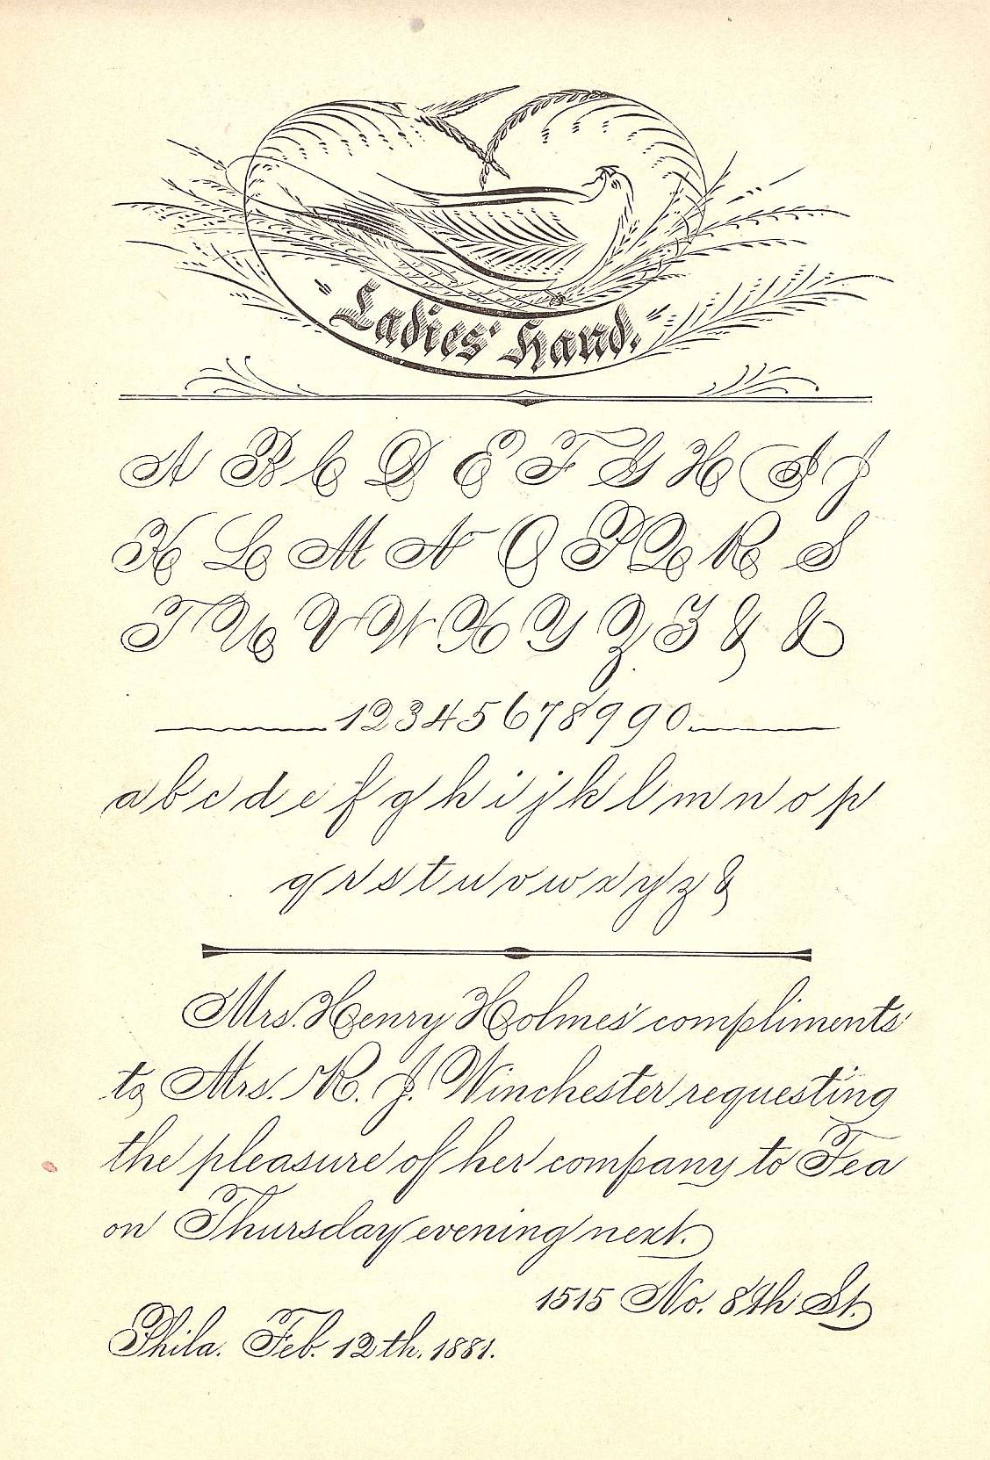 "Ladies' Hand."
A B C D E F G H I J
K L M N O P Q R S
T U V W X Y Z Z & &
12345678990
a b c d e f g h i j k l m n o p
q r s t u v w x y z &
Mrs. Henry Holmes' compliments
to Mrs. R. J. Winchester requesting
the pleasure of her company to Tea
on Thursday evening next.
1515 No. 8th St.
Phila. Feb. 12th. 1881.